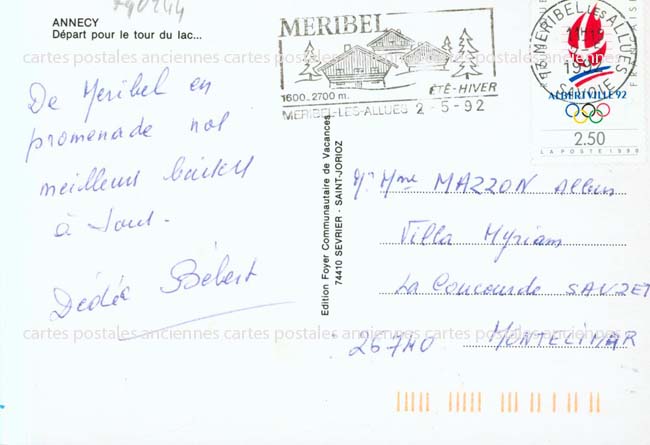 790244
ANNECY
Départ pour le tour du lac...
MERIBEL
1600-2700 m.
ÉTÉ-HIVER
MERIBEL-LES-ALLUES 2-5-92
73 MERIBEL LES ALLUES
SAVOIE
ALBERTVILLE 92
2.50
LA POSTE 1990
De Meribel en
promenade nos
meilleurs baisers
à tous.
Dédée Bébert
Edition Foyer Communautaire de Vacances
74410 SEVRIER - SAINT-JORIOZ
Mr Mme MAZZON Albin
Villa Myriam
La Concourde SAUZET
26740 MONTELIMAR
cartes postales anciennes cartes postales anciennes cartes postales anciennes
cartes postales anciennes cartes postales anciennes cartes postales anciennes